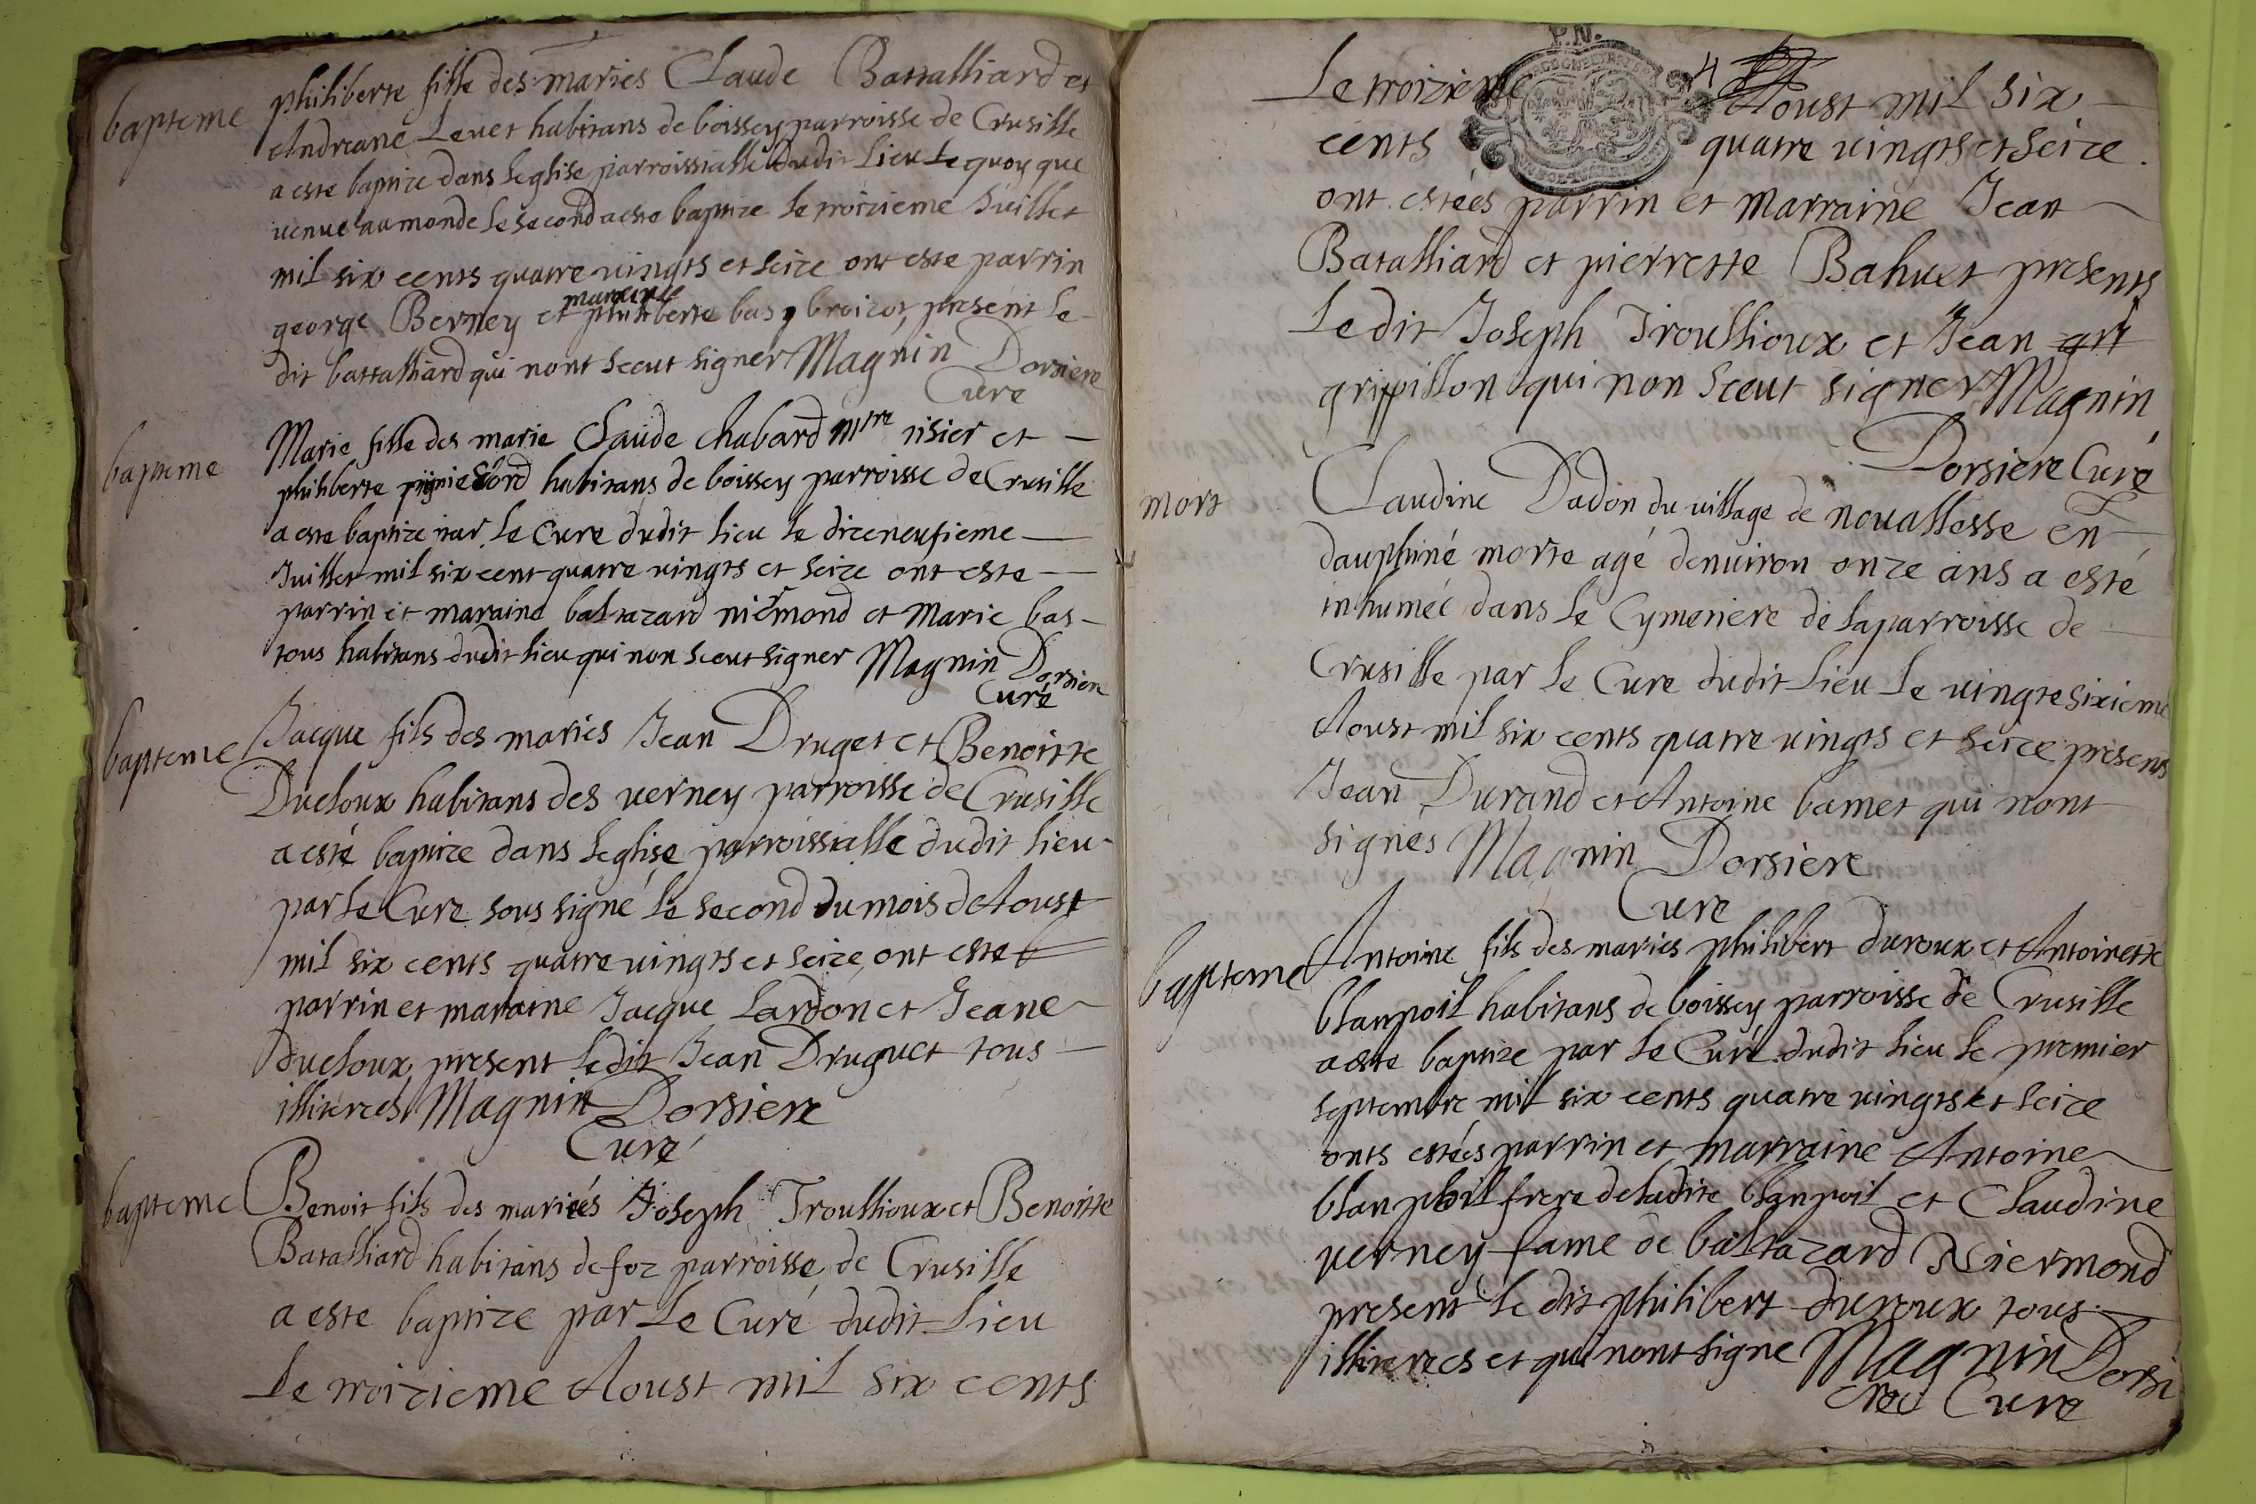 bapteme
philiberte fille des maries Claude Battalliard et
Andreane Levet habitans de boissey parroisse de Crusille
a este baptize dans leglise parroissialle dudit lieu le quoy que
venue au monde le second a este baptize le troizieme Juillet
mil six cents quatre vingts et seize ont este parrin
george Berney et maraine philiberte bas broizot, present le
dit battalliard qui nont sceut signer Magnin Dorsiere
Cure
bapteme
Marie fille des marie Claude chabard mtre tisier et
philiberte habitans de boissey parroisse de Crusille
a este baptize par le Cure dudit lieu le dizeneufieme
Juillet mil six cent quatre vingts et seize ont este
parrin et maraine baltazard niermond et Marie bas
tous habitans dudit lieu qui non sceut signer Magnin Dorsiere
Curé
bapteme
Jacque fils des mariés Jean Druget et Benoitte
Ducloux habitans des verney parroisse de Crusille
a esté baptize dans leglise parroissialle dudit lieu
par le Cure sous signé le second du mois dAoust
mil six cents quatre vingts et seize ont este
parrin et maraine Jacque Lardon et Jeane
ducloux present ledit Jean Druguet tous
illiterres Magnin Dorsiere
Curé
bapteme
Benoit fils des mariés Joseph Troullioux et Benoitte
Batalliard habitans de foz parroisse de Crusille
a este baptize par Le Curé dudit Lieu
le troizieme Aoust mil six cents
P.N.
4
Le troizieme Aoust mil six
cents quatre vingts et seize.
ont estées parrin et marraine Jean
Batalliard et pierrette Bahuet presents
Ledit Joseph Troullioux et Jean gri
grippillon qui non sceut signer Magnin
Dorsiere Curé
mort
Claudine Dadon du village de novallesse en
dauphiné morte agé denviron onze ans a esté
inhumée dans le Cymetiere de la parroisse de
Crusille par le Cure dudit lieu le vingtesixieme
Aoust mil six cents quatre vingts et seize presents
Jean Durand et Antoine bamet qui nont
signés Magnin Dorsiere
Cure
bapteme
Antoine fils des mariés philibert duroux et Antoinette
blanpoil habitans de boissey parroisse de Crusille
a este baptize par le Curé dudit lieu le premier
septembre mil six cents quatre vingts et seize
onts estées parrin et marraine Antoine
blanpoil frere deladite blanpoil et Claudine
verney fame de baltazard Niermond
present le dit philibert duroux tous
illiterres et qui nont signe Magnin Dorsi
ere Cure